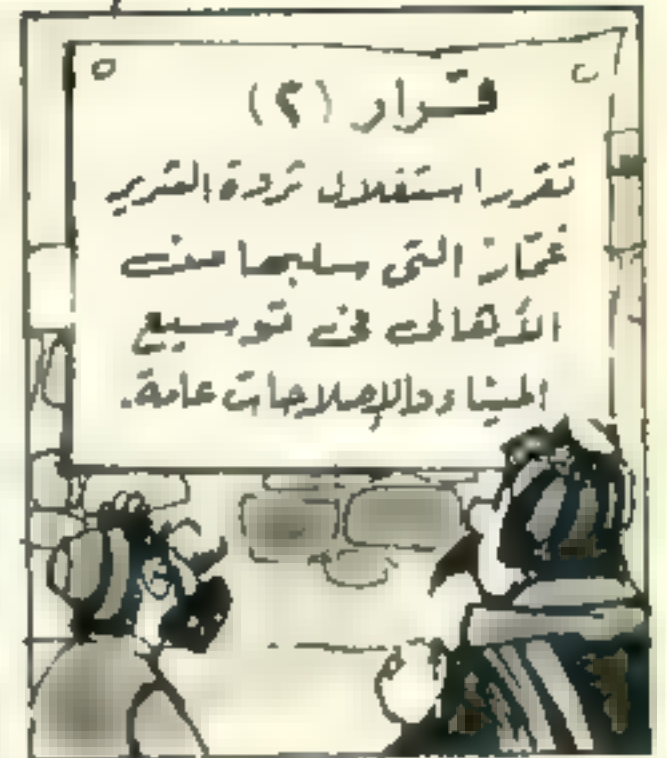 قرار (٢)
تقرر استغلال ثروة الشرير
غمّاز التى سلبها من
الأهالى فى توسيع
الميناء والإصلاحات عامة.